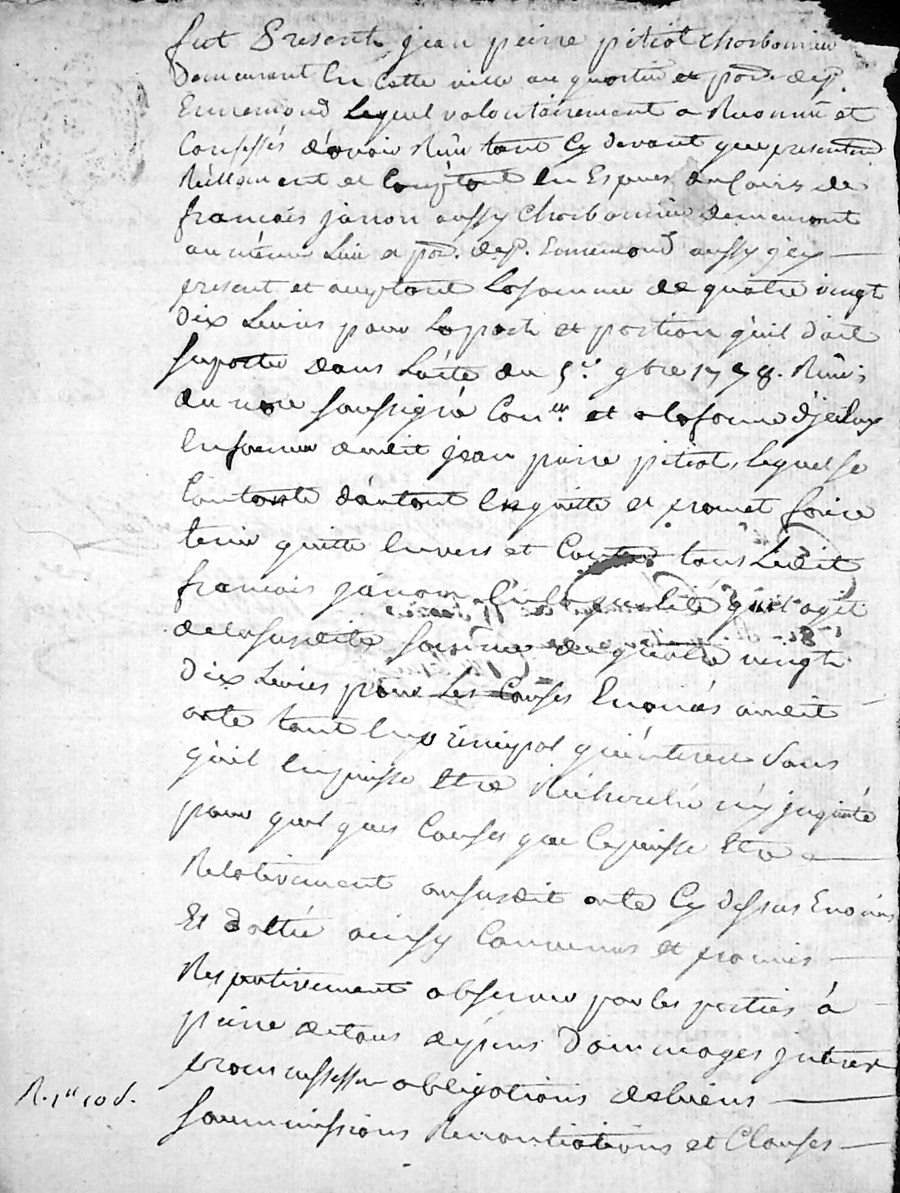 fut present jean peirre pitiot chorbonnier
Demeurant En Cette ville au quortier et poe. de p.
Ennemond Lequel volontairement a Reconnu et
Confessés d'avoir Reçu tant Cy devant que presentem
Réellement et Comptant En Espesses de
francois janon aussy Chorbonnier demeurant
au même Lieu et poe. de p. Ennemond aussy jcy
present et acceptant La somme de quatre vingt
Dix Livres pour La part et portion qu'il doit
suporter dans L'acte du 5e. 9bre 1778. Reçu
du no.re soussigné et a la forme d'jceluy
En faveur dudit jean peirre pitiot, Lequel se
Contante d'autant En quitte et promet faire
tenir quitte Envers et Contre tous Ledit
francois janon En La qualité qu'il agit
de la susdite somme de quatre vingt
Dix Livres pour Les Causes Enoncés audit
acte tant En principal qu'interest sans
qu'il En puisse Etre Recherché n'y jnquiété
pour quelques Causes que Ce puisse Etre
Relativement au susdit acte Cy dessus Enoncés
Et datté ainsy Convenus et promis
Respectivement observer par les parties à
peine de tous depens Dommages jnterest
obligations de biens
soummissions Renontiations et Clauses
R. 1 10 d.